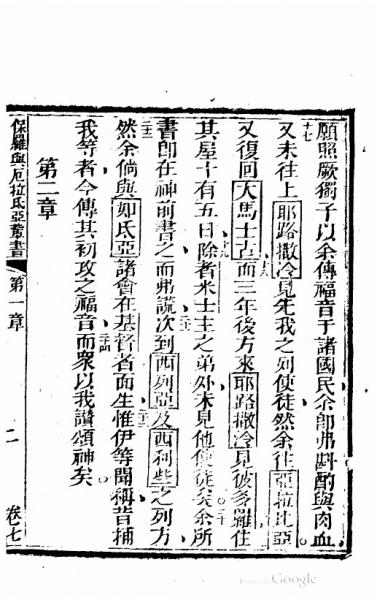 願照厥獨子以余傳福音于諸國民余即弗斟酌與肉血
十七
又未往上耶路撒冷見先我之列使徒然余往亞拉比亞
又復回大馬士古十八而三年後方來耶路撒冷見彼多羅住
其屋十有五日十九除者米士主之弟外未見他使徒矣二十余所
書即在神前書之而弗謊二一次到西列亞及西利些之列方
二二
然余倘與如氏亞諸會在基督者面生二三惟伊等聞稱昔捕
我等者今傳其初攻之福音二四而衆以我讚頌神矣
第二章
保羅與厄拉氏亞輩書 第一章 二 卷七
Google